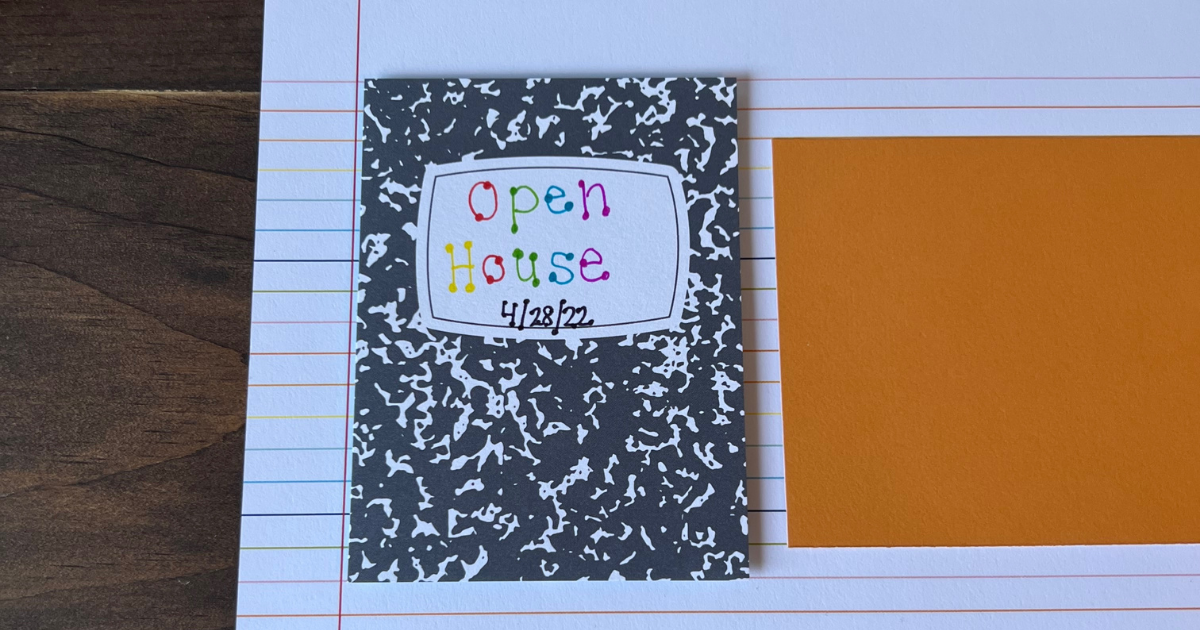 Open
House
4/28/22